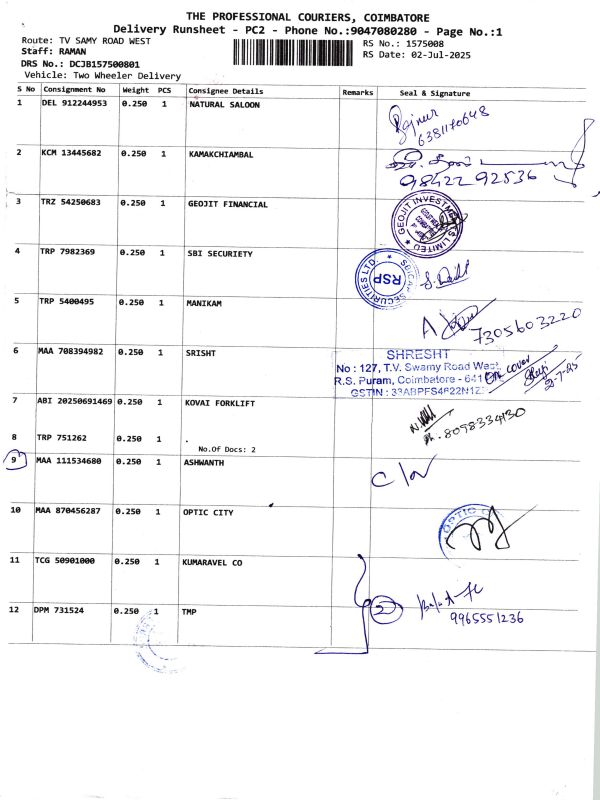 THE PROFESSIONAL COURIERS, COIMBATORE
Delivery Runsheet - PC2 - Phone No.:9047080280 - Page No.:1
Route: TV SAMY ROAD WEST
RS No.: 1575008
Staff: RAMAN
RS Date: 02-Jul-2025
DRS No.: DCJB157500801
Vehicle: Two Wheeler Delivery
S No Consignment No Weight PCS Consignee Details Remarks Seal & Signature
1 DEL 912244953 0.250 1 NATURAL SALOON
6381170648
2 KCM 13445682 0.250 1 KAMAKCHIAMBAL
98422 92536
3 TRZ 54250683 0.250 1 GEOJIT FINANCIAL
GEOJIT INVESTMENTS LIMITED
4 TRP 7982369 0.250 1 SBI SECURIETY
SBICAP SECURITIES LTD.
RSP
5 TRP 5400495 0.250 1 MANIKAM
7305603220
6 MAA 708394982 0.250 1 SRISHT
SHRESHT
No : 127, T.V. Swamy Road West,
R.S. Puram, Coimbatore - 641
GSTIN : 33ABPFS4622N1Z
one cover
2-7-25
7 ABI 20250691469 0.250 1 KOVAI FORKLIFT
8098334130
8 TRP 751262 0.250 1 .
No.Of Docs: 2
9 MAA 111534680 0.250 1 ASHWANTH
10 MAA 870456287 0.250 1 OPTIC CITY
OPTIC
11 TCG 50901000 0.250 1 KUMARAVEL CO
12 DPM 731524 0.250 1 TMP
2
9965551236